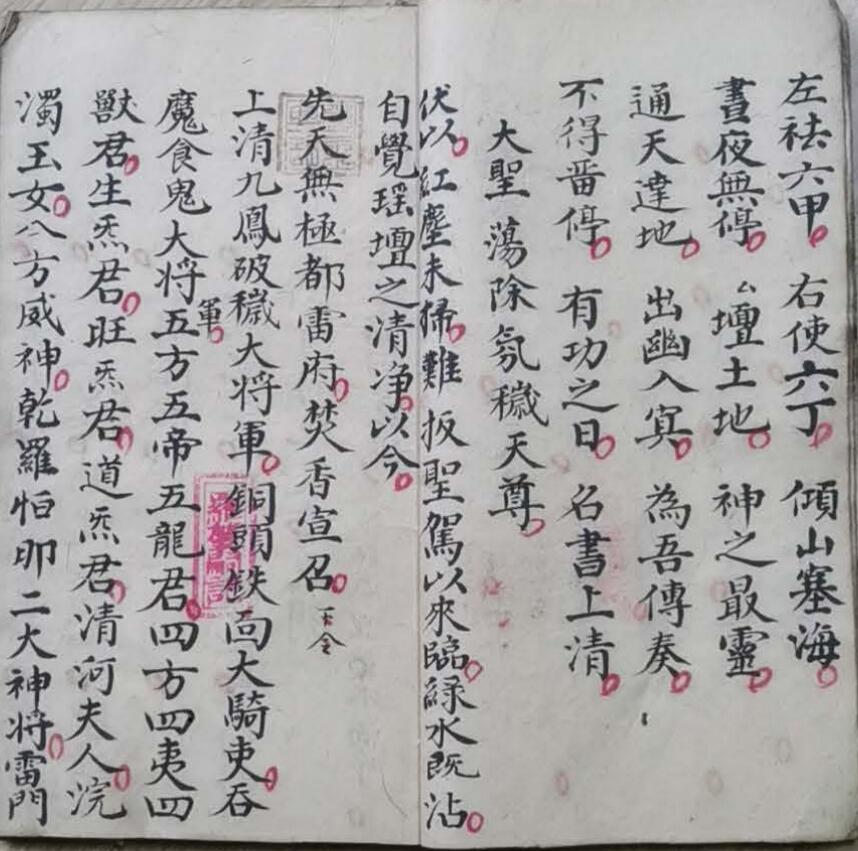 左祛六甲 右使六丁 傾山塞海
晝夜無停 厶壇土地 神之最靈
通天達地 出幽入冥 為吾傳奏
不得畱停 有功之日 名書上清
大聖蕩除氛穢天尊
伏以紅塵未掃難扳聖駕以來臨綠水既沾
自覺瑶壇之清净以今
先天無極都雷府焚香宣召
上清九鳳破穢大将軍銅頭鉄面大騎吏吞
魔食鬼大将軍五方五帝五龍君四方四夷四
獸君生炁君旺炁君道炁君清河夫人浣
濁玉女八方威神乾羅怛那二大神将雷門